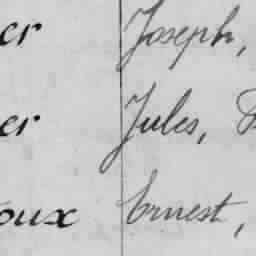 er Joseph,
er Jules,
oux Ernest,